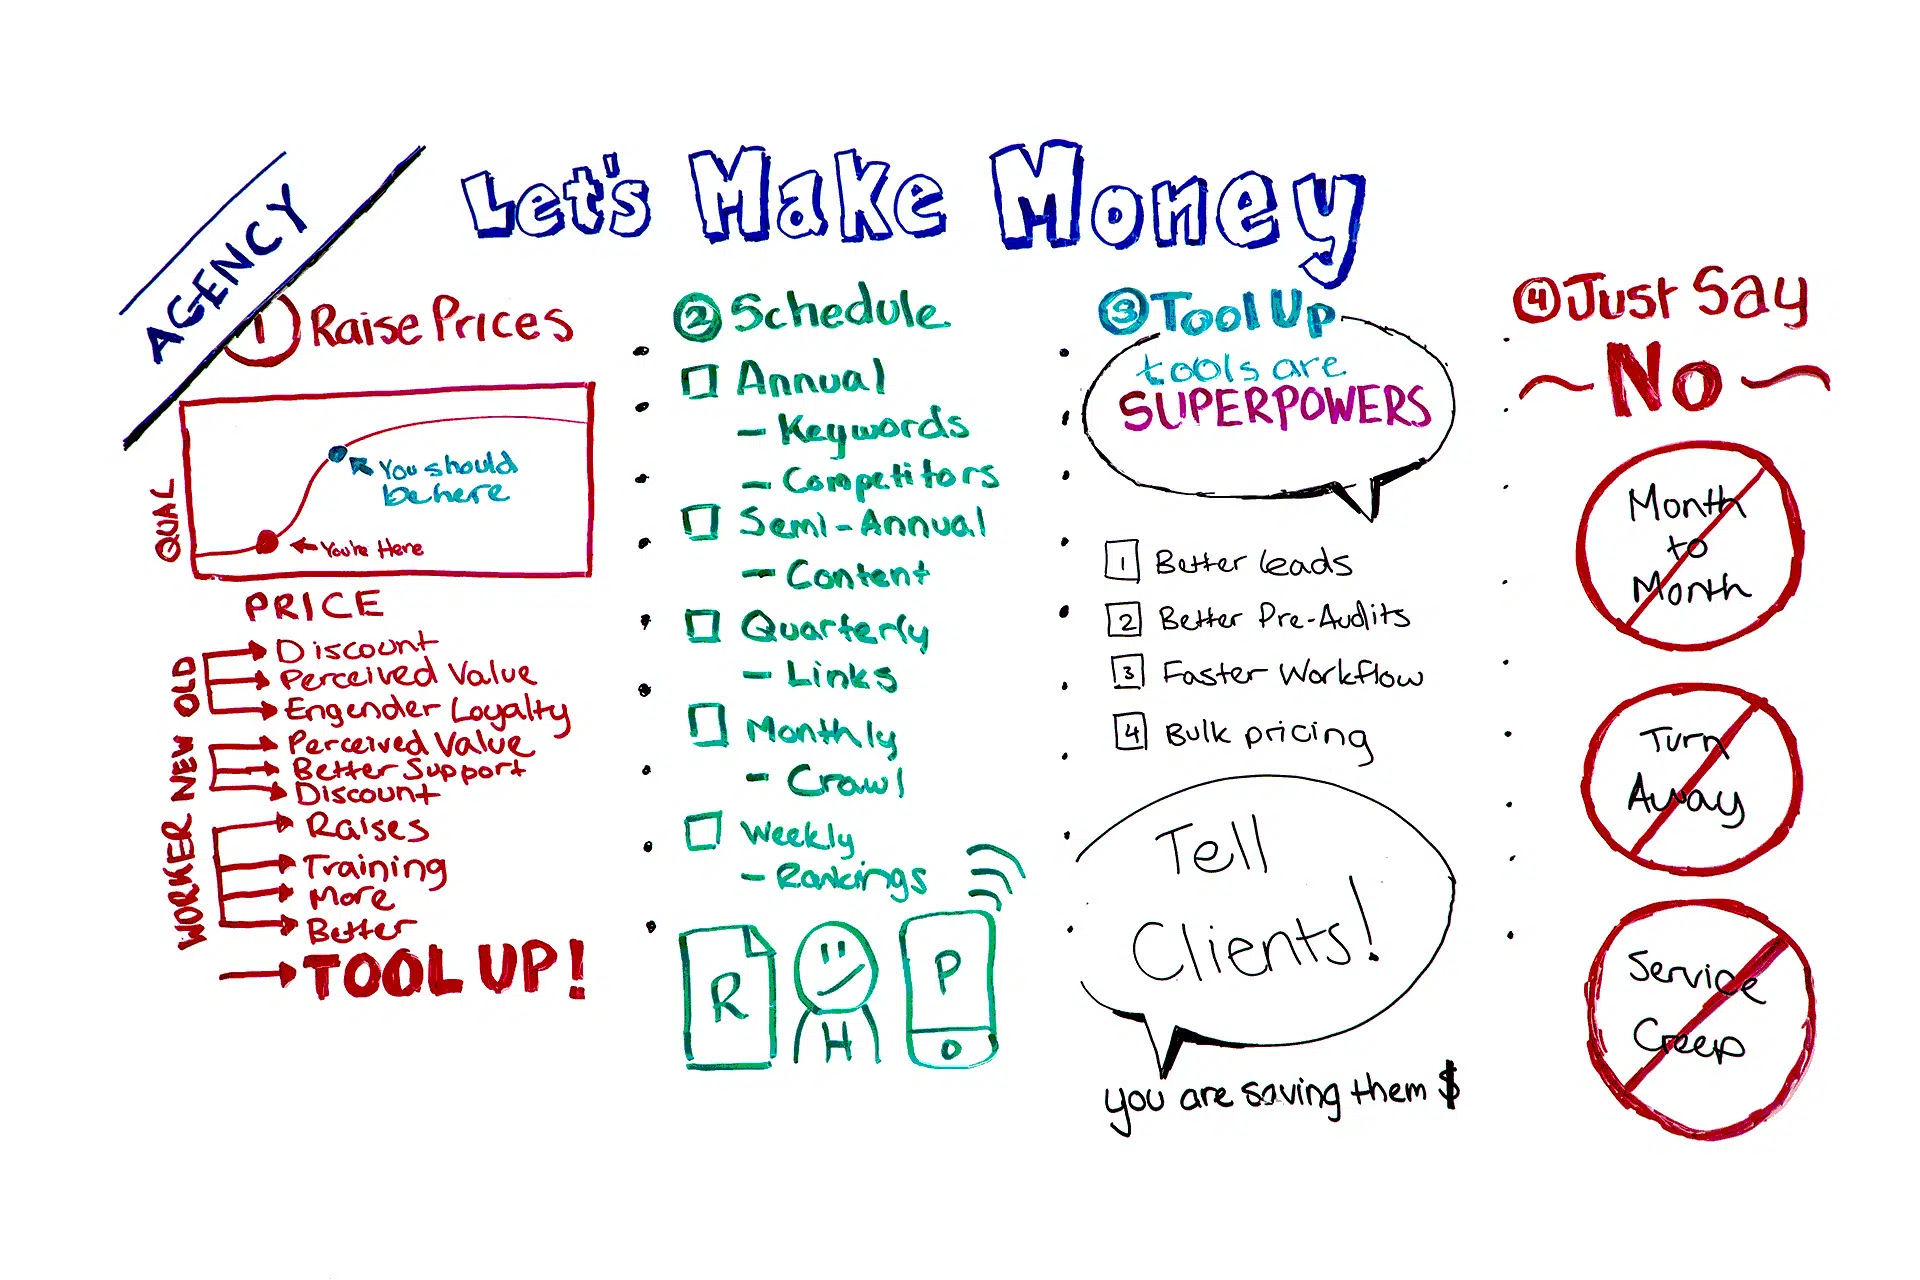 AGENCY
Let's Make Money
1 Raise Prices
QUAL
You should
be here
You're Here
PRICE
OLD
Discount
Perceived Value
Engender Loyalty
NEW
Perceived Value
Better Support
Discount
WORKER
Raises
Training
More
Better
TOOL UP!
2 Schedule
Annual
- Keywords
- Competitors
Semi-Annual
- Content
Quarterly
- Links
Monthly
- Crawl
Weekly
- Rankings
R
H
P
3 Tool Up
tools are
SUPERPOWERS
1 Better leads
2 Better Pre-Audits
3 Faster Workflow
4 Bulk pricing
Tell
Clients!
you are saving them $
4 Just Say
No
Month
to
Month
Turn
Away
Service
Creep